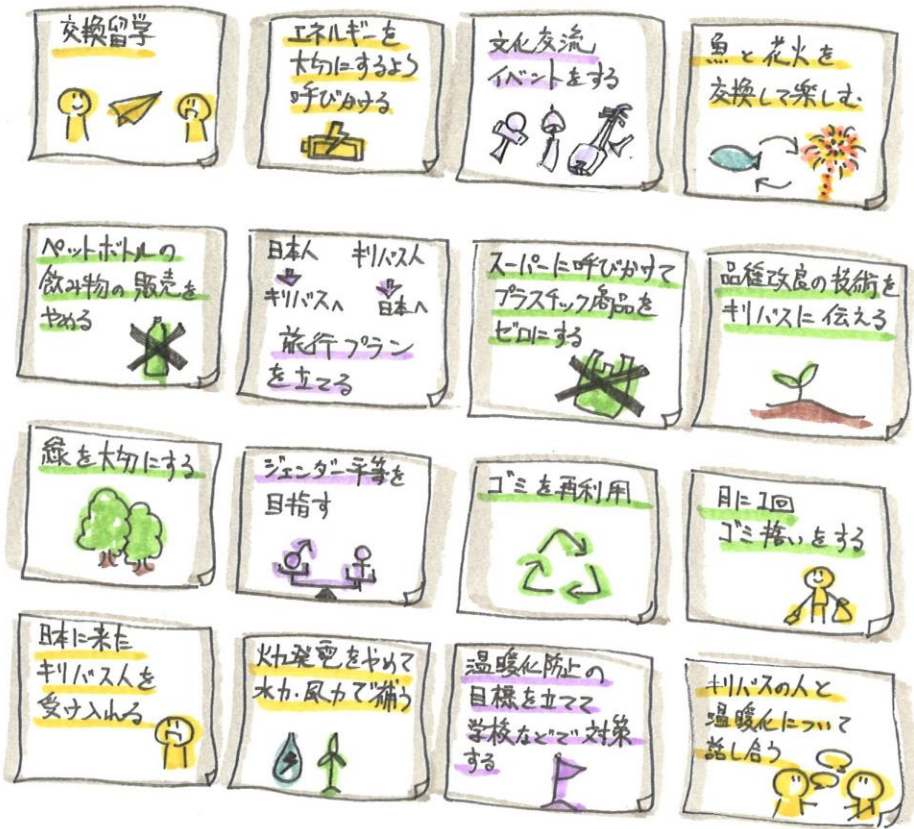 交換留学
エネルギーを
大切にするよう
呼びかける
文化交流
イベントをする
魚と花火を
交換して楽しむ
ペットボトルの
飲み物の販売を
やめる
日本人 キリバス人
キリバスへ 日本へ
旅行プラン
を立てる
スーパーに呼びかけて
プラスチック商品を
ゼロにする
品種改良の技術を
キリバスに伝える
緑を大切にする
ジェンダー平等を
目指す
ゴミを再利用
月に1回
ゴミ拾いをする
日本に来た
キリバス人を
受け入れる
火力発電をやめて
水力・風力で補う
温暖化防止の
目標を立てて
学校などで対策
する
キリバスの人と
温暖化について
話し合う